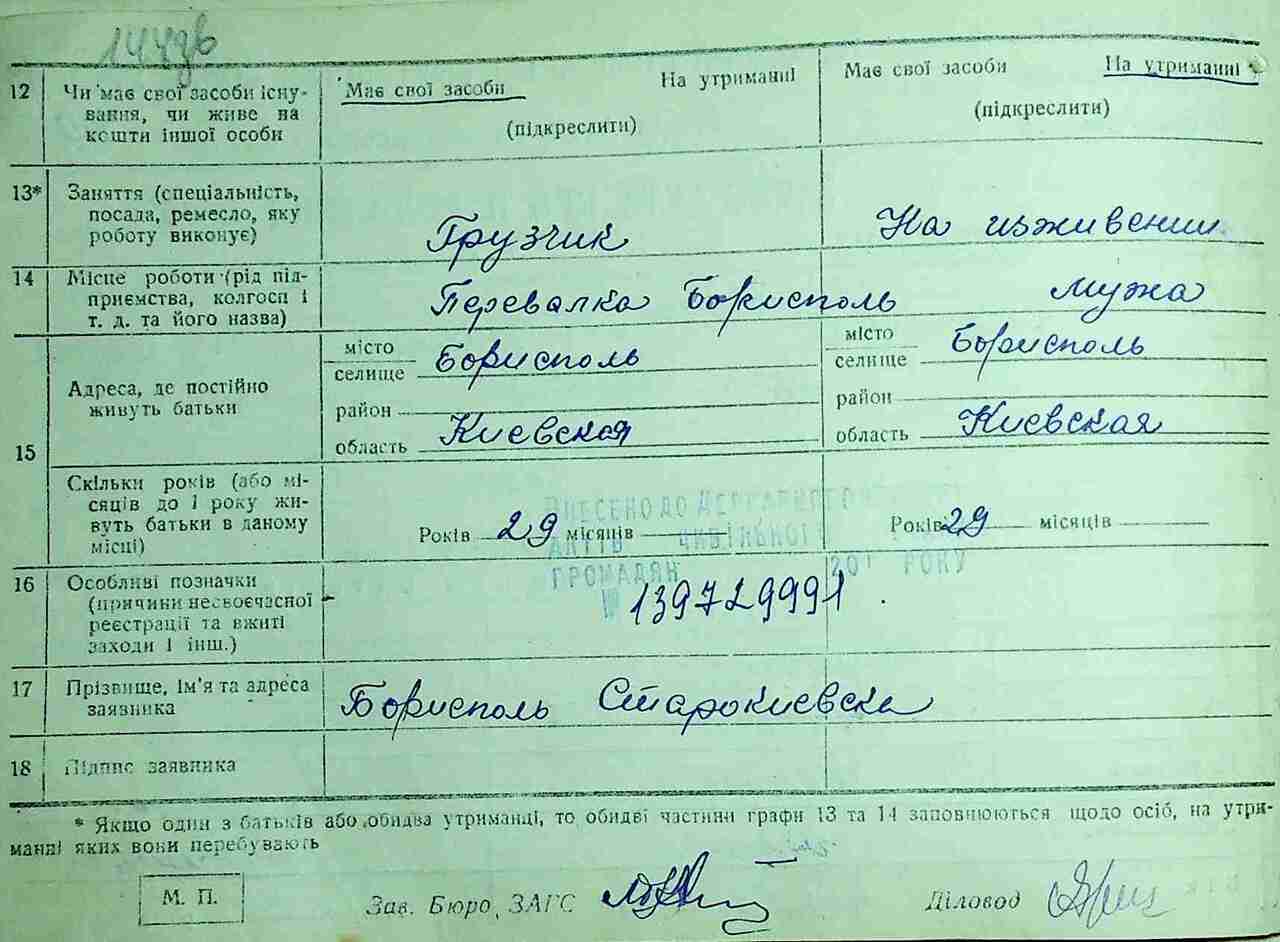 12 Чи має свої засоби існу-
вання, чи живе на
кошти іншої особи
Має свої засоби На утриманні
(підкреслити)
Має свої засоби На утриманні
(підкреслити)
13* Заняття (спеціальність,
посада, ремесло, яку
роботу виконує)
Грузчик
На иживении
14 Місце роботи (рід під-
приємства, колгосп і
т. д. та його назва)
Перевалка Борисполь
мужа
15 Адреса, де постійно
живуть батьки
місто
селище Борисполь
район
область Киевская
місто
селище Борисполь
район
область Киевская
Скільки років (або мі-
сяців до 1 року жи-
вуть батьки в даному
місці)
Років 29 місяців
Років 29 місяців
ВНЕСЕНО ДО ДЕРЖАВНОГО
АКТІВ ЦИВІЛЬНОГО
ГРОМАДЯН 201 РОКУ
№ 139729991
16 Особливі позначки
(причини несвоєчасної
реєстрації та вжиті
заходи і інш.)
17 Прізвище, ім'я та адреса
заявника
Борисполь Старокиевска
18 Підпис заявника
* Якщо один з батьків або обидва утриманці, то обидві частини графи 13 та 14 заповнюються щодо осіб, на утри-
манні яких вони перебувають
М. П.
Зав. Бюро ЗАГС
Діловод